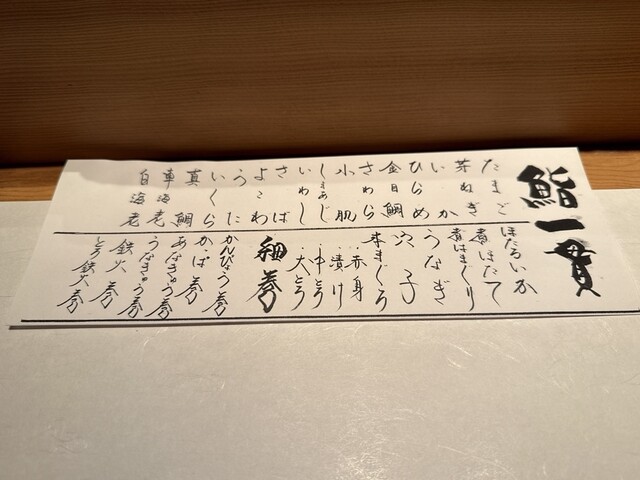 鮨一貫
たまご
芽ねぎ
いか
ひらめ
金目鯛
さわら
小肌
しまあじ
いわし
さば
よこわ
うに
いくら
真鯛
車海老
白海老
ほたるいか
煮ほたて
煮はまぐり
うなぎ
穴子
本まぐろ
・赤身
・漬け
・中とろ
・大とろ
細巻
かんぴょう巻
かっぱ巻
あなきゅう巻
うなきゅう巻
鉄火巻
とろ鉄火巻